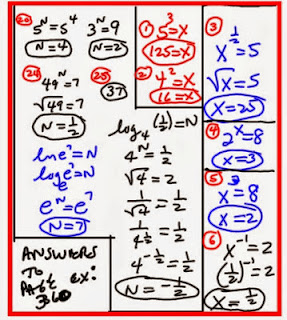 20 5^N=5^4 3^N=9
N=4 N=2
24 49^N=7 25
√49=7 37
N=1/2
ln e^7=N
log_e e^7=N
e^N=e^7
N=7
ANSWERS
TO
PAGE EX:
360
① 5^3=X
125=X
② 4^2=X
16=X
log_4(1/2)=N
4^N=1/2
√4=2
1/√4=1/2
1/4^(1/2)=1/2
4^(-1/2)=1/2
N=-1/2
③
X^(1/2)=5
√X=5
X=25
④ 2^X=8
X=3
⑤
X^3=8
X=2
⑥
X^-1=2
(1/2)^-1=2
X=1/2